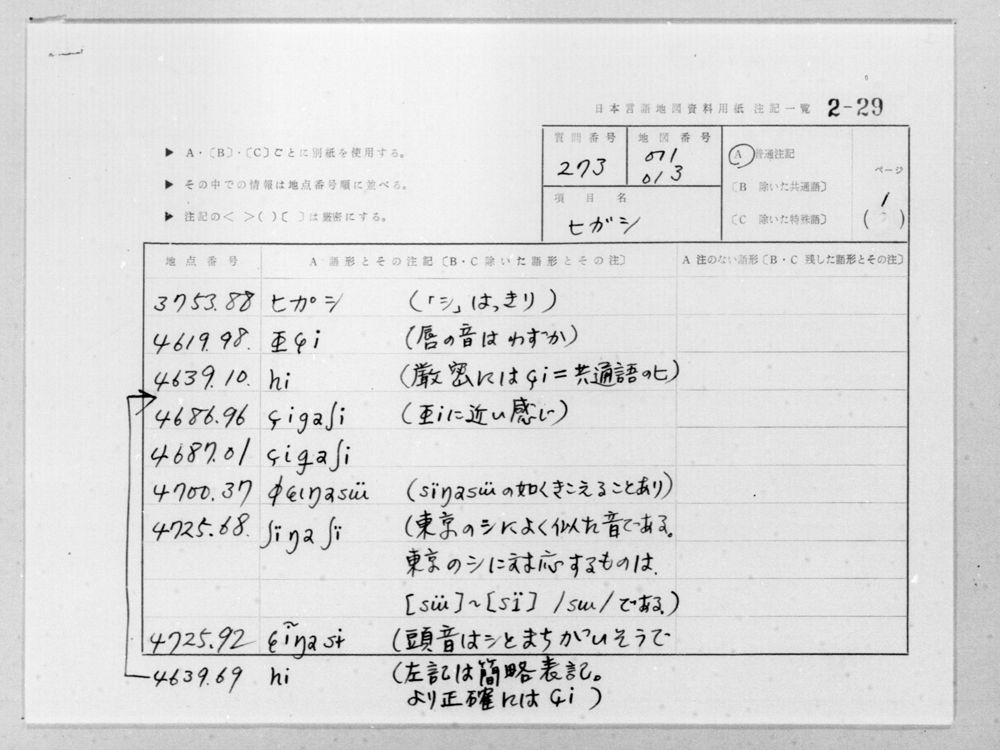 日本言語地図資料用紙 注記一覧 2-29
▶ A・〔B〕・〔C〕ごとに別紙を使用する。
▶ その中での情報は地点番号順に並べる。
▶ 注記の< >( )〔 〕は厳密にする。
質問番号 地図番号
273 011
013
項目名
ヒガシ
A 普通注記
〔B 除いた共通語〕
〔C 除いた特殊語〕
ページ
1
地点番号 A 語形とその注記〔B・C 除いた語形とその注〕 A 注のない語形〔B・C 残した語形とその注〕
3753.88 ヒカ゜シ (「シ」はっきり)
4619.98. 亜çi (唇の音はわずか)
4639.10. hi (厳密にはçi=共通語のヒ)
4686.96 çigaʃi (亜iに近い感じ)
4687.01 çigaʃi
4700.37 ɸɕïŋasɯ̈ (sïŋasɯ̈の如くきこえることあり)
4725.68. ʃïŋaʃï (東京のシによく似た音である。
東京のシに対応するものは、
[sɯ̈]~[sï] /sɯ/である。)
4725.92 (頭音はシとまちがいそうで
4639.69 hi (左記は簡略表記。
より正確にはçi)